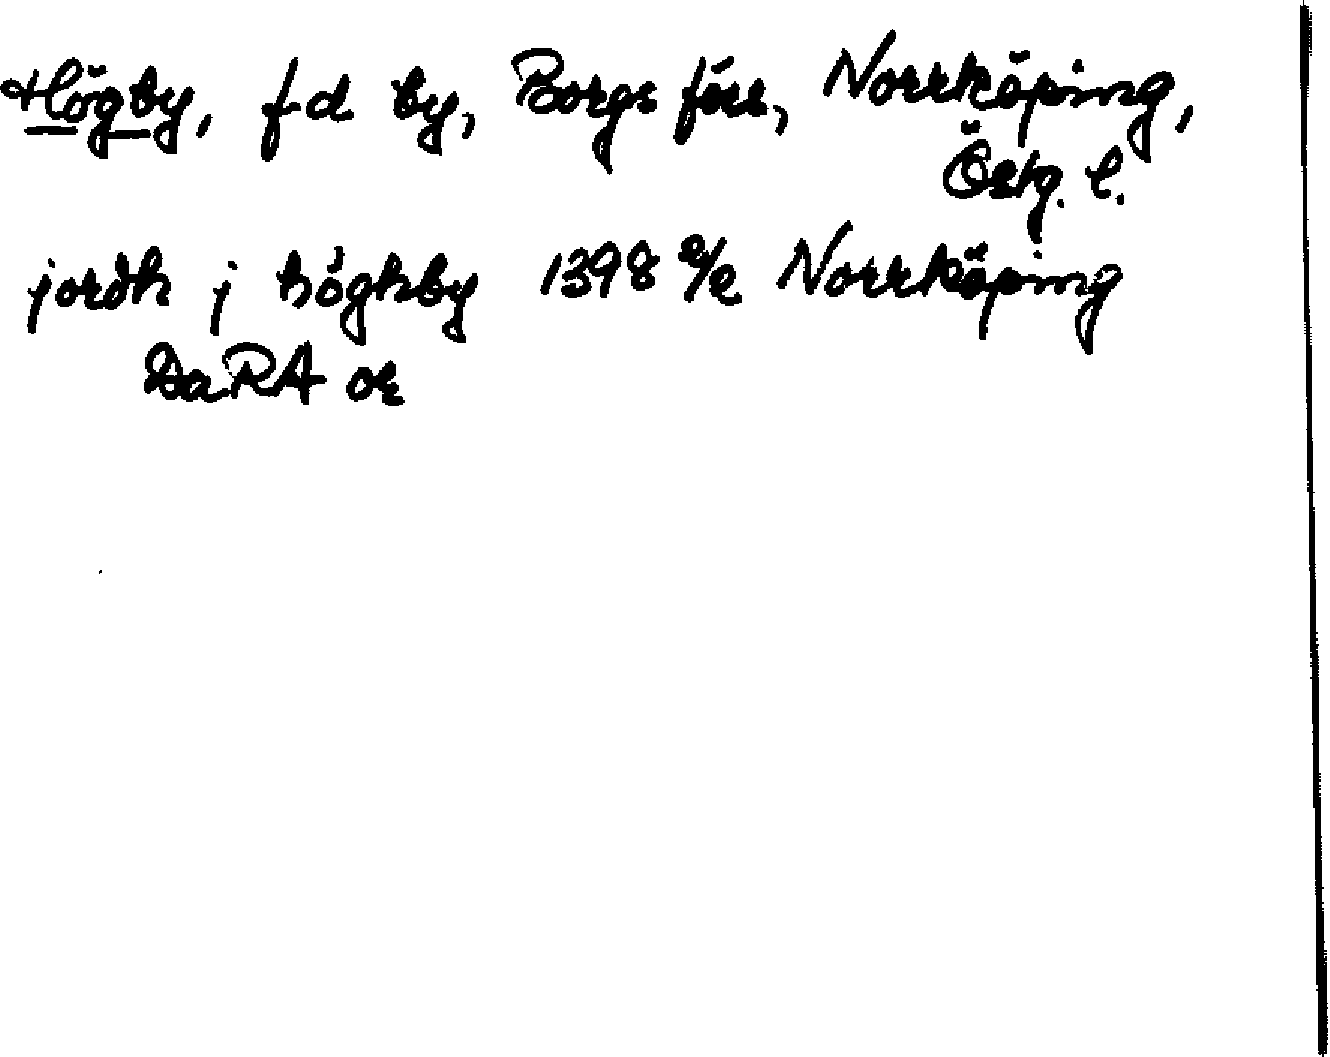 Högby, f d by, Borgs förs, Norrköping,
Östg. l.
jordh j höghby 1398 9/2 Norrköping
DaRA or